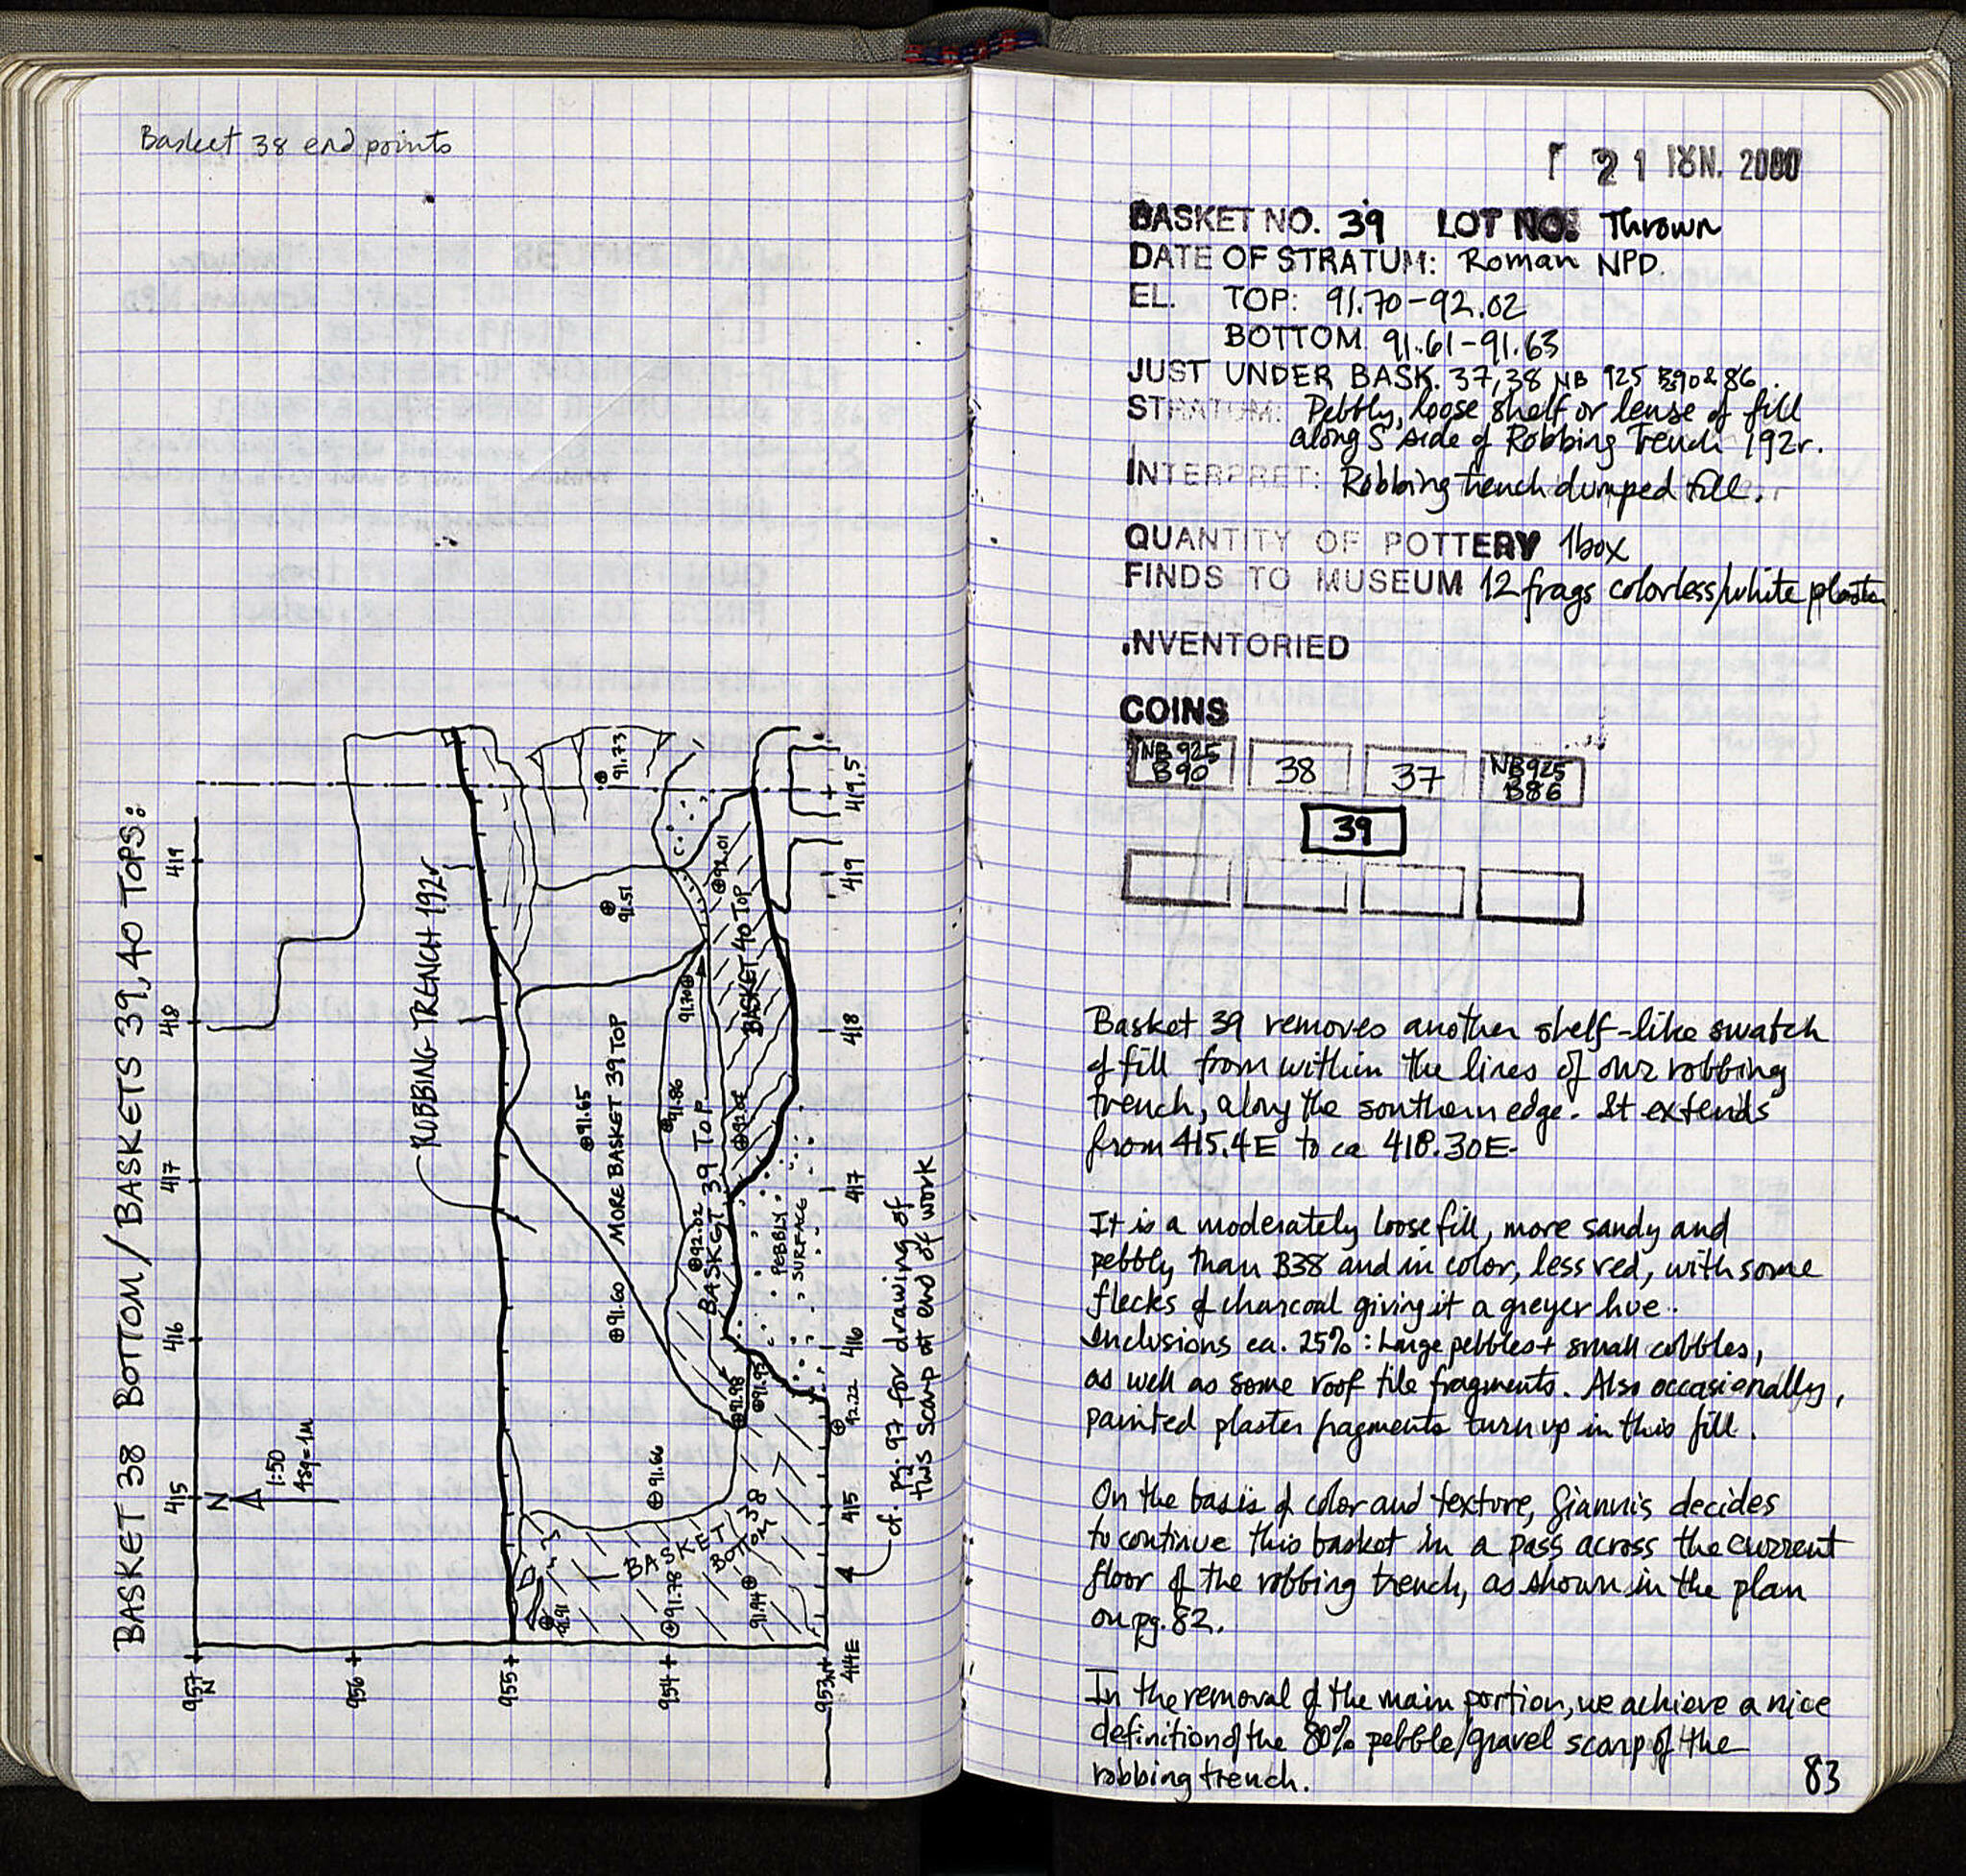 Basket 38 end points
BASKET 38 BOTTOM / BASKETS 39, 40 TOPS:
415 416 417 418 419
N
1:50
4sq=1M
ROBBING TRENCH 192r
91.73
91.51
92.01
BASKET 40 TOP
91.70
91.65
MORE BASKET 39 TOP
91.86
92.02
BASKET 39 TOP
92.02
91.60
PEBBLY
SURFACE
91.98
91.95
92.22
91.66
BASKET 38
BOTTOM
91.91
91.78
91.94
957 N
956
955
954
953N
414E
415 416 417 418 419 419.5
cf. pg. 97 for drawing of
this scarp at end of work
21 ΙΟΥΝ. 2000
BASKET NO. 39 LOT NO: Thrown
DATE OF STRATUM: Roman NPD.
EL. TOP: 91.70-92.02
BOTTOM 91.61-91.63
JUST UNDER BASK. 37,38 NB 925 B90 & 86
STRATUM: Pebbly, loose shelf or lense of fill
along S side of Robbing Trench 192r.
INTERPRET: Robbing trench dumped fill.
QUANTITY OF POTTERY 1box
FINDS TO MUSEUM 12 frags colorless/white plaster
.NVENTORIED
COINS
NB 925 B90 38 37 NB925 B86
39
Basket 39 removes another shelf-like swatch
of fill from within the lines of our robbing
trench, along the southern edge. It extends
from 415.4E to ca 418.30E-
It is a moderately loose fill, more sandy and
pebbly than B38 and in color, less red, with some
flecks of charcoal giving it a greyer hue.
Inclusions ca. 25%: Large pebbles + small cobbles,
as well as some roof tile fragments. Also occasionally,
painted plaster fragments turn up in this fill.
On the basis of color and texture, Giannis decides
to continue this basket in a pass across the current
floor of the robbing trench, as shown in the plan
on pg. 82.
In the removal of the main portion, we achieve a nice
definition of the 80% pebble/gravel scarp of the
robbing trench.
83